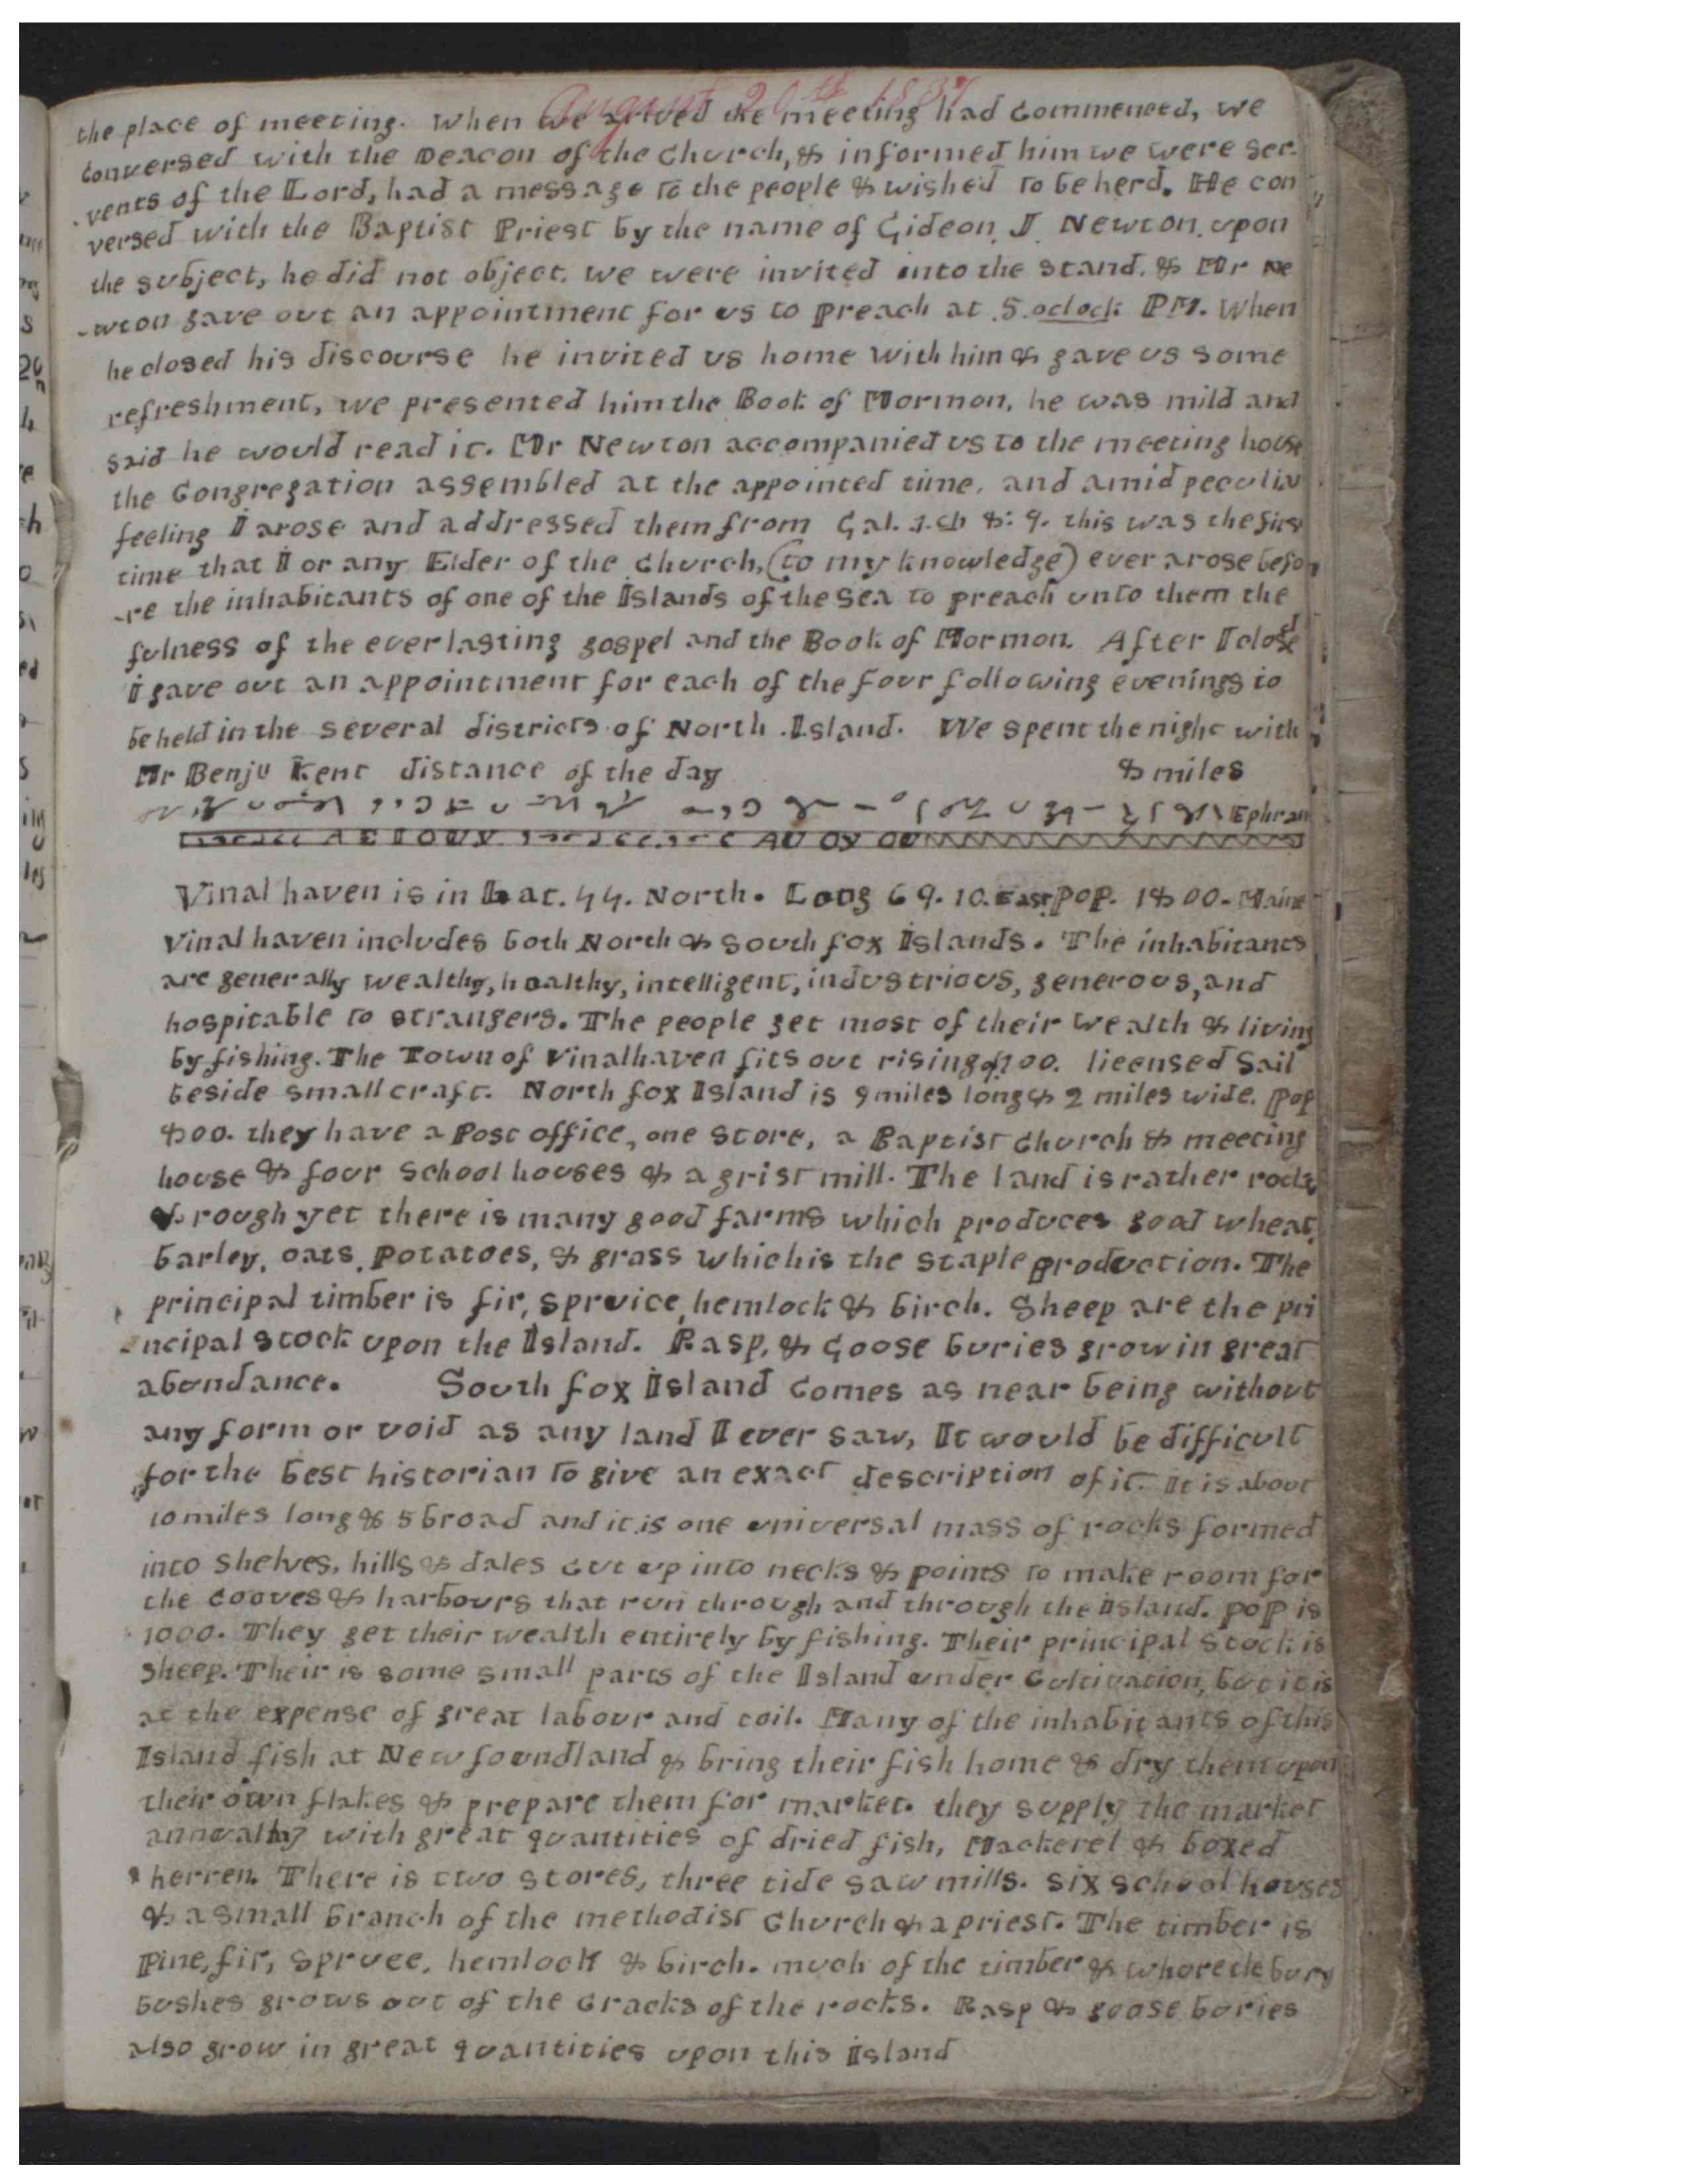 August 20th 1837
the place of meeting. When we arived the meeting had commenced, we
conversed with the Deacon of the Church, & informed him we were ser-
-vents of the Lord, had a message to the people & wished to be herd. He con
versed with the Baptist Priest by the name of Gideon J. Newton upon
the subject, he did not object. we were invited into the stand. & Mr Ne
-wton gave out an appointment for us to preach at 5. oclock PM. When
he closed his discourse he invited us home with him & gave us some
refreshment, we presented him the Book of Mormon, he was mild and
said he would read it. Mr Newton accompanied us to the meeting house
the Congregation assembled at the appointed time, and amid peculiar
feeling I arose and addressed them from Gal. 1. ch 8: 9. this was the firs
time that I or any Elder of the Church, (to my knowledge) ever arose befo
-re the inhabitants of one of the Islands of the Sea to preach unto them the
fulness of the everlasting gospel and the Book of Mormon. After I closed
I gave out an appointment for each of the four following evenings to
be held in the several districts of North Island. We spent the night with
Mr Benju Kent distance of the day 8 miles
Ephraim
Vinal haven is in Lat. 44. North. Long 69. 10. East, pop. 1800. Maine
Vinal haven includes both North & South fox Islands. The inhabitants
are generally wealthy, healthy, intelligent, industrious, generous, and
hospitable to strangers. The people get most of their wealth & living
by fishing. The Town of Vinalhaven fits out rising of 100. licensed Sail
beside small craft. North fox Island is 9 miles long & 2 miles wide. pop
800. they have a Post office, one Store, a Baptist Church & meeting
house & four School houses & a grist mill. The land is rather rocky
& rough yet there is many good farms which produces goad wheat,
barley, oats, potatoes, & grass which is the staple production. The
principal timber is fir, spruice, hemlock & birch. Sheep are the pri
-ncipal stock upon the Island. Rasp, & Goose buries grow in great
abundance. South fox Island comes as near being without
any form or void as any land I ever saw, It would be difficult
for the best historian to give an exact description of it. It is about
10 miles long & 5 broad and it is one universal mass of rocks formed
into shelves, hills & dales cut up into necks & points to make room for
the cooves & harbours that run through and through the Island. pop is
1000. They get their wealth entirely by fishing. Their principal stock is
sheep. Their is some small parts of the Island under cultivation, but it is
at the expense of great labour and toil. Many of the inhabitants of this
Island fish at New foundland & bring their fish home & dry them upon
their own flakes & prepare them for market. they supply the market
annually with great quantities of dried fish, Mackerel & boxed
herren. There is two stores, three tide saw mills. six school houses
& a small branch of the methodist Church & a priest. The timber is
Pine, fir, spruce, hemlock & birch. much of the timber & whoretlebury
bushes grows out of the cracks of the rocks. Rasp & goose buries
also grow in great quantities upon this Island